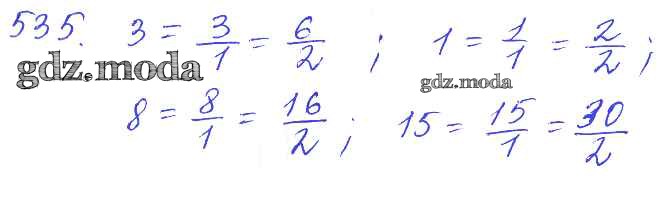 535. 3 = 3/1 = 6/2 ; 1 = 1/1 = 2/2 ;
gdz.moda
gdz.moda
8 = 8/1 = 16/2 ; 15 = 15/1 = 30/2